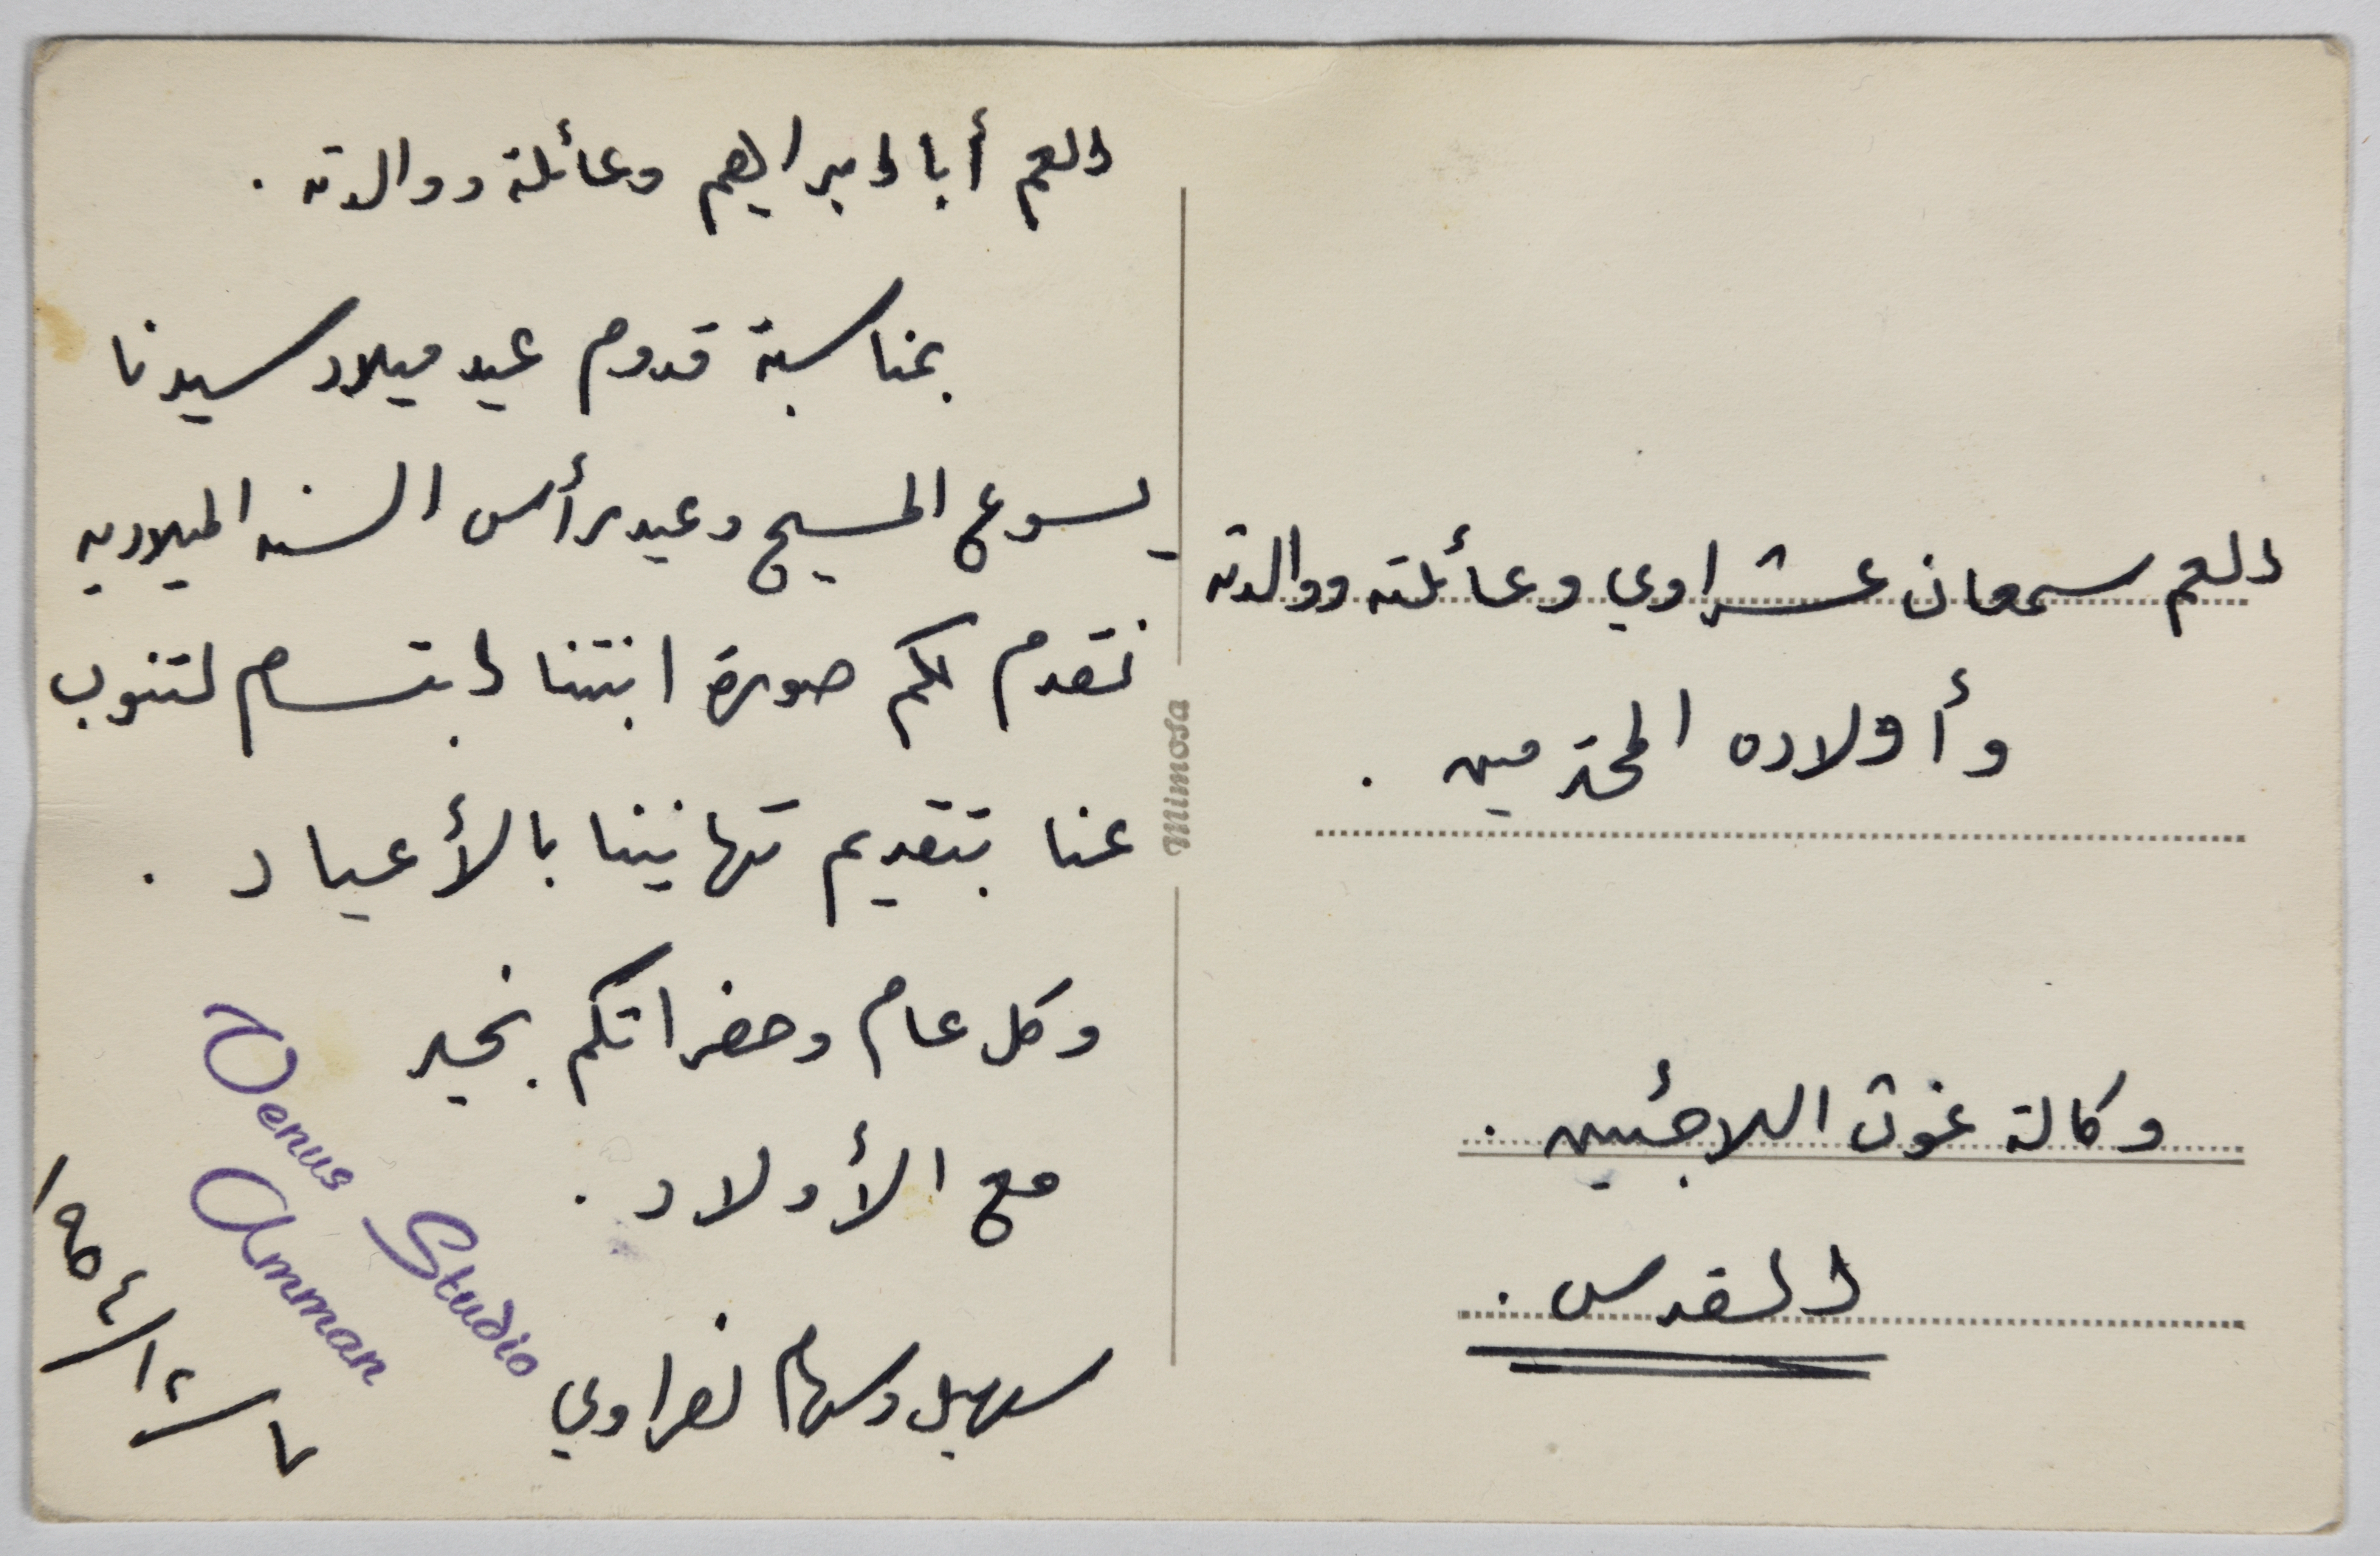 العم أبا ابراهيم وعائلة ووالدته .
بمناسبة قدوم عيد ميلاد سيدنا
يسوع المسيح وعيد رأس السنه الميلاديه
نقدم لكم صورة ابنتنا ابتسام لتنوب
عنا بتقديم تهانينا بالأعياد .
وكل عام وحضراتكم بخير
مع الأولاد .
سهيل وسهام نصراوي
١٩٥٤/١٢/٧
Venus Studio
Amman
Mimosa
العم سمعان عشراوي وعائلته ووالدته
وأولاده المحترمين .
وكالة غوث اللاجئين .
القدس .